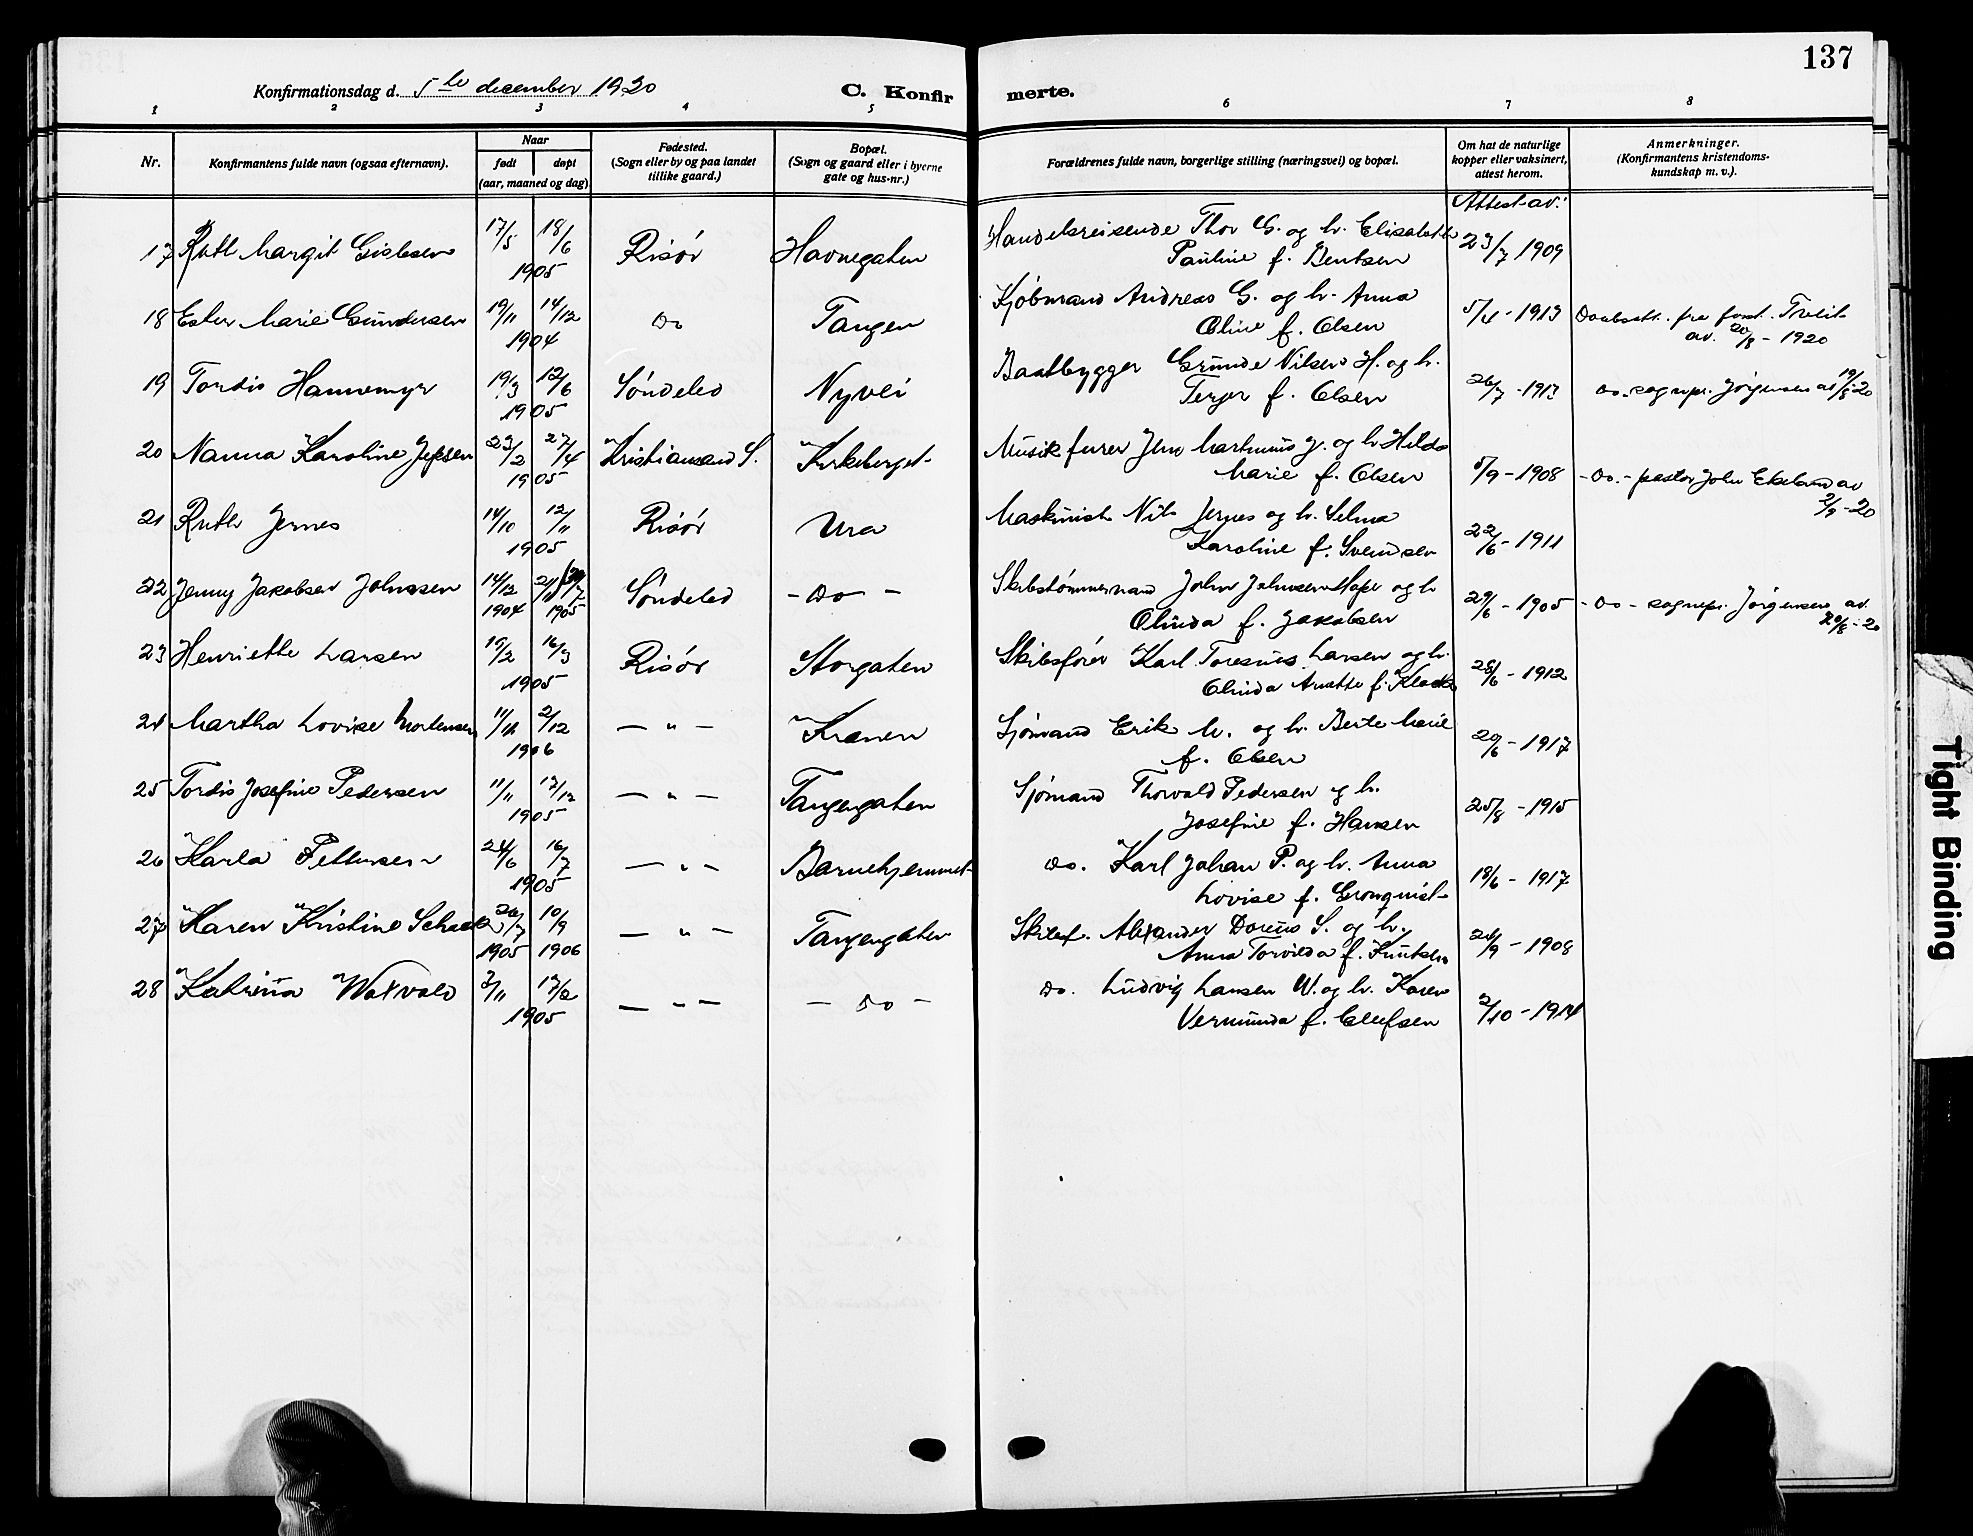 137
Konfirmationsdag d. 5te december 1920
C. Konfir merte.
1 2 3 4 5 6 7 8
Nr.
Konfirmantens fulde navn (ogsaa efternavn).
Naar
født døpt
(aar, maaned og dag)
Fødested.
(Sogn eller by og paa landet
tillike gaard.)
Bopæl.
(Sogn og gaard eller i byerne
gate og hus-nr.)
Forældrenes fulde navn, borgerlige stilling (næringsvei) og bopæl.
Om hat de naturlige
kopper eller vaksinert,
attest herom.
Anmerkninger.
(Konfirmantens kristendoms-
kundskap m. v.).
Attest av:
17 Ruth Margit Gislesen 17/5 18/6 Risör Havnegaten Handelsreisende Thor G. og h. Elisabeth 23/7 1909
1905 Pauline f. Bentsen
18 Ester Marie Gundersen 19/11 14/12 Do Tangen Kjöbmand Andreas G. og h. Anna 5/4 - 1913 Daabsatt. fra
1904 Oline f. Olsen av. 20/8 - 1920
19 Tordis Hannemyr 19/3 12/6 Söndeled Nyvei Baatbygger Grunde Nilsen H. og h. 26/7 - 1913 Do. sognepr. Jörgensen av 19/8-20
1905 Terjer f. Olsen
20 Nanna Karoline Jepsen 23/2 27/4 Kristiansand S. Kirkeberget Musikfurer Jens Martinius J. og h. Hilda 5/9 - 1908 - Do. - pastor John Ekeland av
1905 Marie f. Olsen 2/9 - 20
21 Ruth Jernes 14/10 12/11 Risör Ura Maskinist Nils Jernes og h. Selma 22/6 - 1911
1905 Karoline f. Svendsen
22 Jenny Jakobsen Johnsen 14/12 Söndeled - Do - Skibstömmermand John Johnsen Hope og h 29/6 - 1905 - Do - sognepr. Jörgensen av.
1904 1905 Olinda f. Jakobsen
23 Henriette Larsen 15/2 16/3 Risör Storgaten Skibsförer Karl Toresius Larsen og h. 28/6 - 1912
1905 Olinda Anette f.
24 Martha Lovise Mortensen 11/11 2/12 - " - Kranen Sjömand Erik M. og h. Berte Marie 29/6 - 1917
1906 f. Olsen
25 Tordis Josefine Pedersen 11/11 17/12 - " - Tangengaten Sjömand Thorvald Pedersen og h. 25/8 - 1915
1905 Josefine f. Hansen
26 Karla Pettersen 24/6 16/7 - " - Barnehjemmet Do. Karl Johan P. og h. Anna 18/6 - 1917
1905 Lovise f. Gronquist
27 Karen Kristine Schack 26/7 10/9 - " - Tangengaten Skibsf. Alexander Dorenus S. og h. 24/9 - 1908
1905 1906 Anna Torvilda f. Knutsen
28 Katrina Waxvold 3/11 17/12 - " - - Do - Do. Ludvig Larsen W. og h. Karen 2/10 - 1914
1905 Vermunda f. Olufsen
Tight Binding